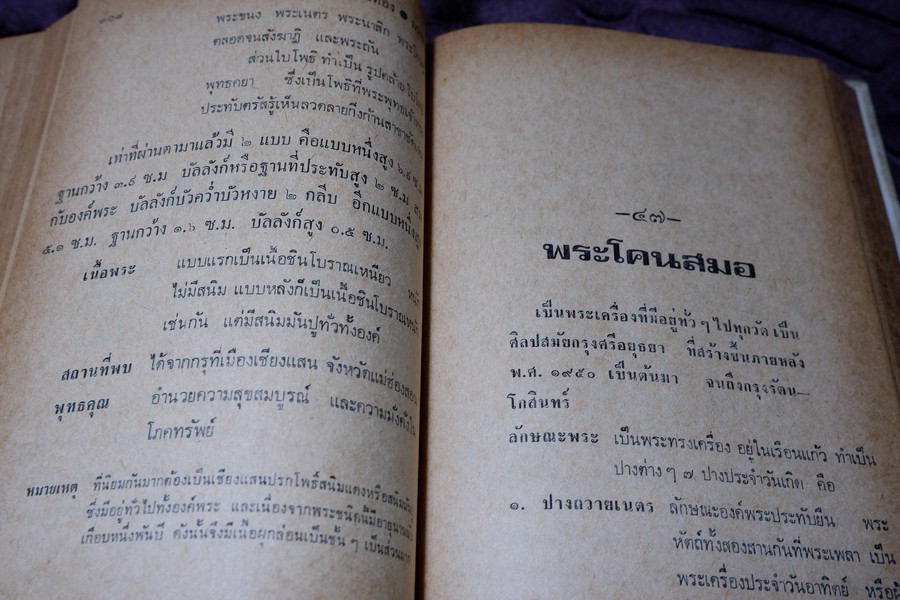 ๓๐๘
พระขนง พระเนตร พระนาสิก
ตลอดจนสังฆาฏิ และพระถัน
ส่วนใบโพธิ ทำเป็น รูปคล้าย
พุทธคยา ซึ่งเป็นโพธิที่พระพุทธเจ้า
ประทับตรัสรู้เห็นลวดลายกิ่งก้านสาขา
เท่าที่ผ่านตามาแล้วมี ๒ แบบ คือแบบหนึ่งสูง ๖.๙ ซ.ม
ฐานกว้าง ๓.๙ ซ.ม บัลลังก์หรือฐานที่ประทับสูง ๒ ซ.ม
กับองค์พระ บัลลังก์บัวคว่ำบัวหงาย ๒ กลีบ อีกแบบหนึ่งสูง
๕.๑ ซ.ม. ฐานกว้าง ๑.๖ ซ.ม. บัลลังก์สูง ๐.๕ ซ.ม.
เนื้อพระ แบบแรกเป็นเนื้อชินโบราณเหนียว
ไม่มีสนิม แบบหลังก็เป็นเนื้อชินโบราณ
เช่นกัน แต่มีสนิมมันปูทั่วทั้งองค์
สถานที่พบ ได้จากกรุที่เมืองเชียงแสน จังหวัดแม่ฮ่องสอน
พุทธคุณ อำนวยความสุขสมบูรณ์ และความมั่งคั่งใน
โภคทรัพย์
หมายเหตุ ที่นิยมกันมากต้องเป็นเชียงแสนปรกโพธิ์สนิมแดงหรือสนิม
ซึ่งมีอยู่ทั่วไปทั้งองค์พระ และเนื่องจากพระชนิดนี้มีอายุ
เกือบหนึ่งพันปี ดังนั้นจึงมีเนื้อผุกล่อนเป็นชั้น ๆ เป็นส่วนมาก
—๔๗—
พระโคนสมอ
เป็นพระเครื่องที่มีอยู่ทั่ว ๆ ไปทุกวัด เป็น
ศิลปสมัยกรุงศรีอยุธยา ที่สร้างขึ้นภายหลัง
พ.ศ. ๑๙๕๐ เป็นต้นมา จนถึงกรุงรัตน—
โกสินทร์
ลักษณะพระ เป็นพระทรงเครื่อง อยู่ในเรือนแก้ว ทำเป็น
ปางต่าง ๆ ๗ ปางประจำวันเกิด คือ
๑. ปางถวายเนตร ลักษณะองค์พระประทับยืน พระ
หัตถ์ทั้งสองสานกันที่พระเพลา เป็น
พระเครื่องประจำวันอาทิตย์ หรือ